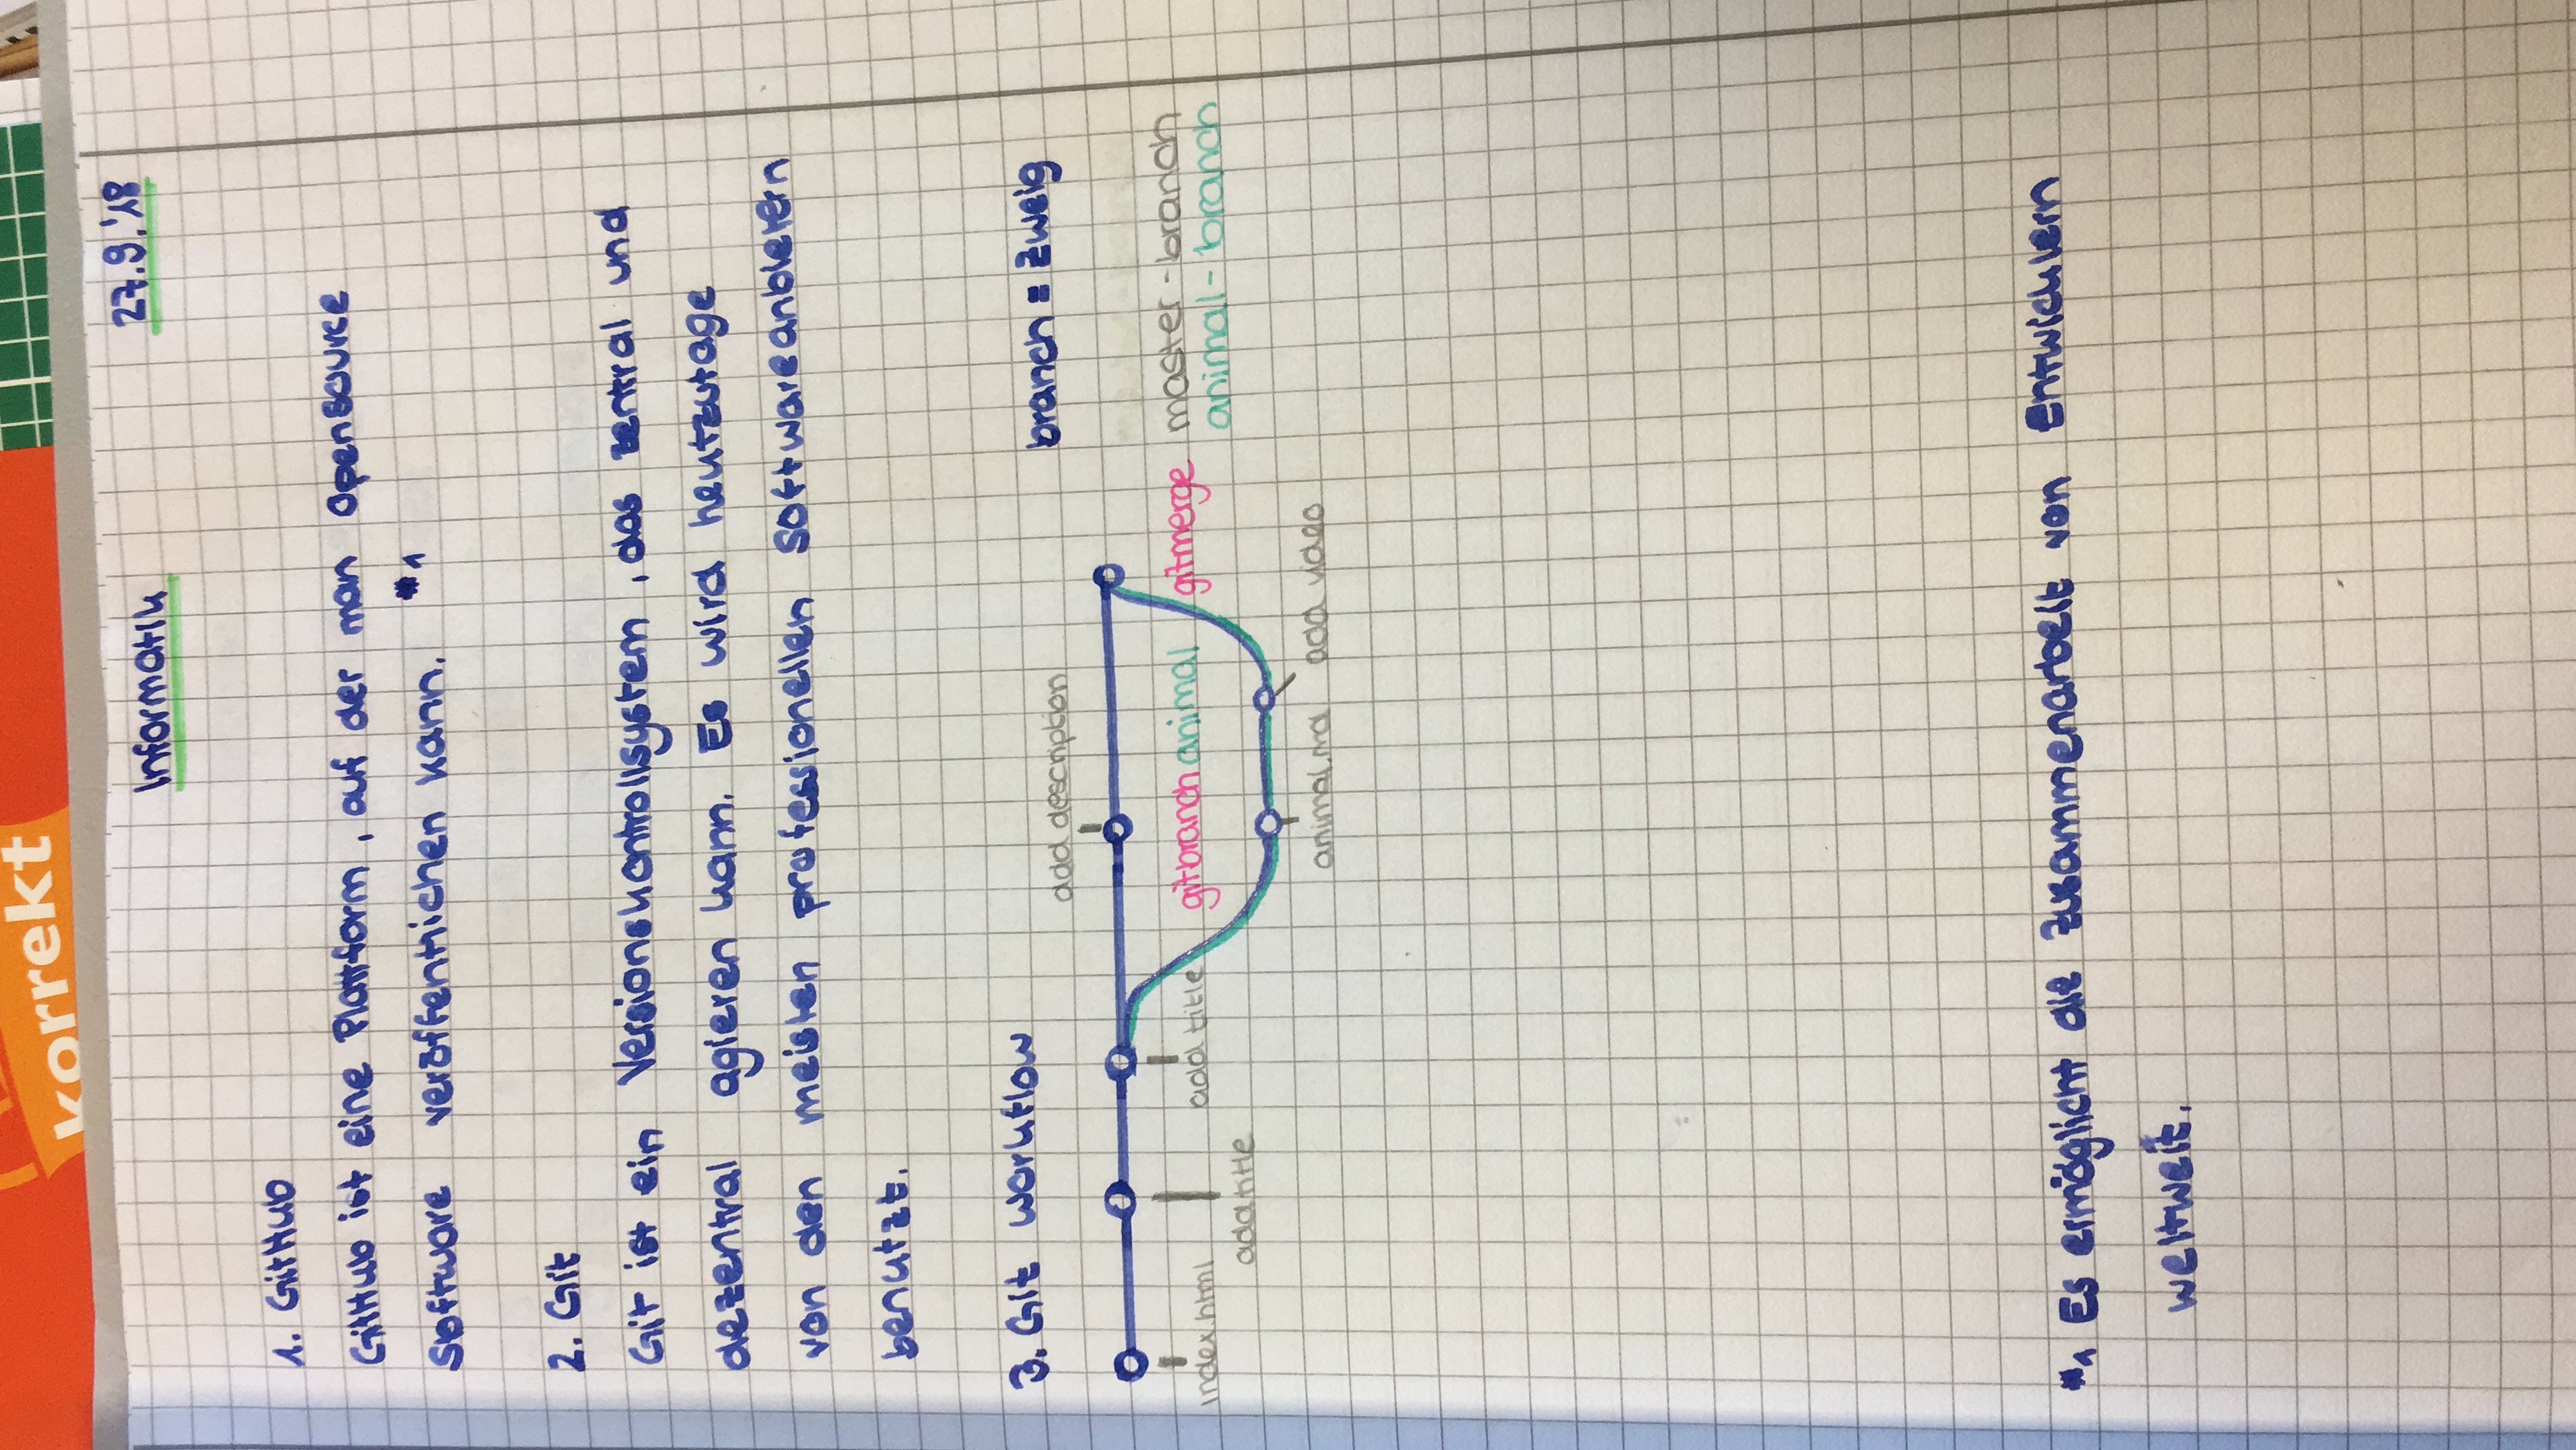 korrekt
Informatik 27.9.'18
1. GitHub
GitHub ist eine Plattform, auf der man Opensource
Software veröffentlichen kann. *1
2. Git
Git ist ein Versionskontrollsystem, das zentral und
dezentral agieren kann. Es wird heutzutage
von den meisten professionellen Softwareanbietern
benutzt.
3. Git workflow
branch = Zweig
add description
index.html
add title
add title
git branch animal
git merge
master-branch
animal-branch
animal.md
add video
*1 Es ermöglicht die Zusammenarbeit von Entwicklern
weltweit.